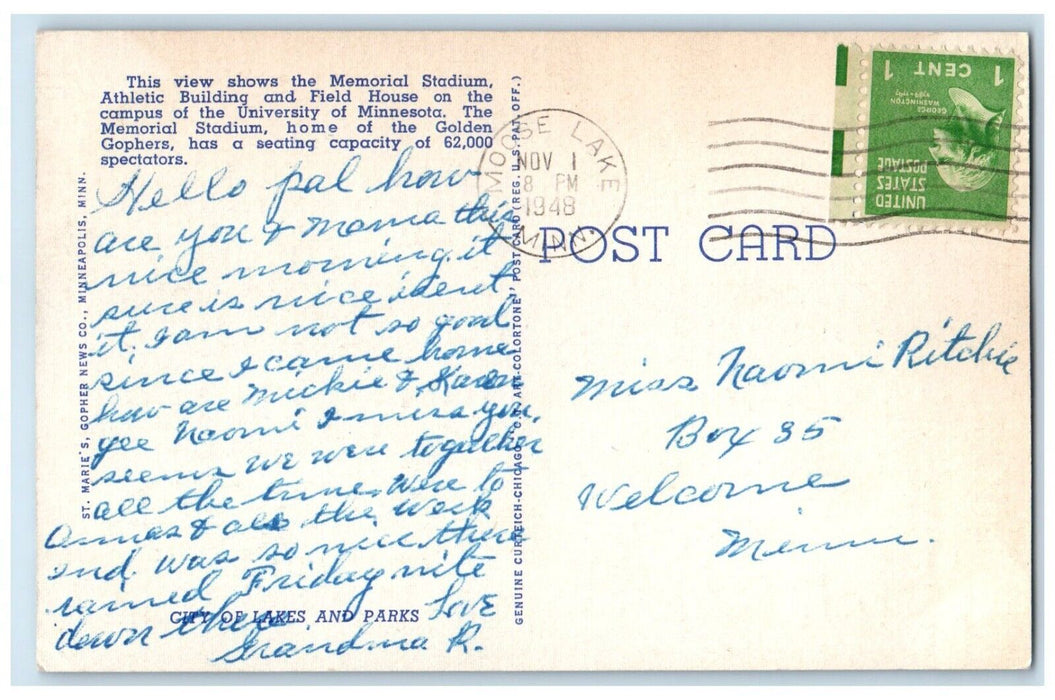 This view shows the Memorial Stadium,
Athletic Building and Field House on the
campus of the University of Minnesota. The
Memorial Stadium, home of the Golden
Gophers, has a seating capacity of 62,000
spectators.
Hello pal how
are you & mama this
nice morning. it
sure is nice isent
it, I am not so good
since I came home
how are Mickie & Karen
gee Naomi I miss you,
seems we were together
all the time. Were to
Annas & als the week
end. was so nice there
rained Friday nite
down there Love
Grandma R.
CITY OF LAKES AND PARKS
ST. MARIE'S, GOPHER NEWS CO., MINNEAPOLIS, MINN.
GENUINE CURTEICH-CHICAGO "C.T. ART-COLORTONE" POST CARD (REG. U.S. PAT. OFF.)
MOOSE LAKE
NOV 1
8 PM
1948
MINN.
POST CARD
1 CENT 1
GEORGE
WASHINGTON
UNITED
STATES
POSTAGE
Miss Naomi Ritchie
Box 35
Welcome
Minn.